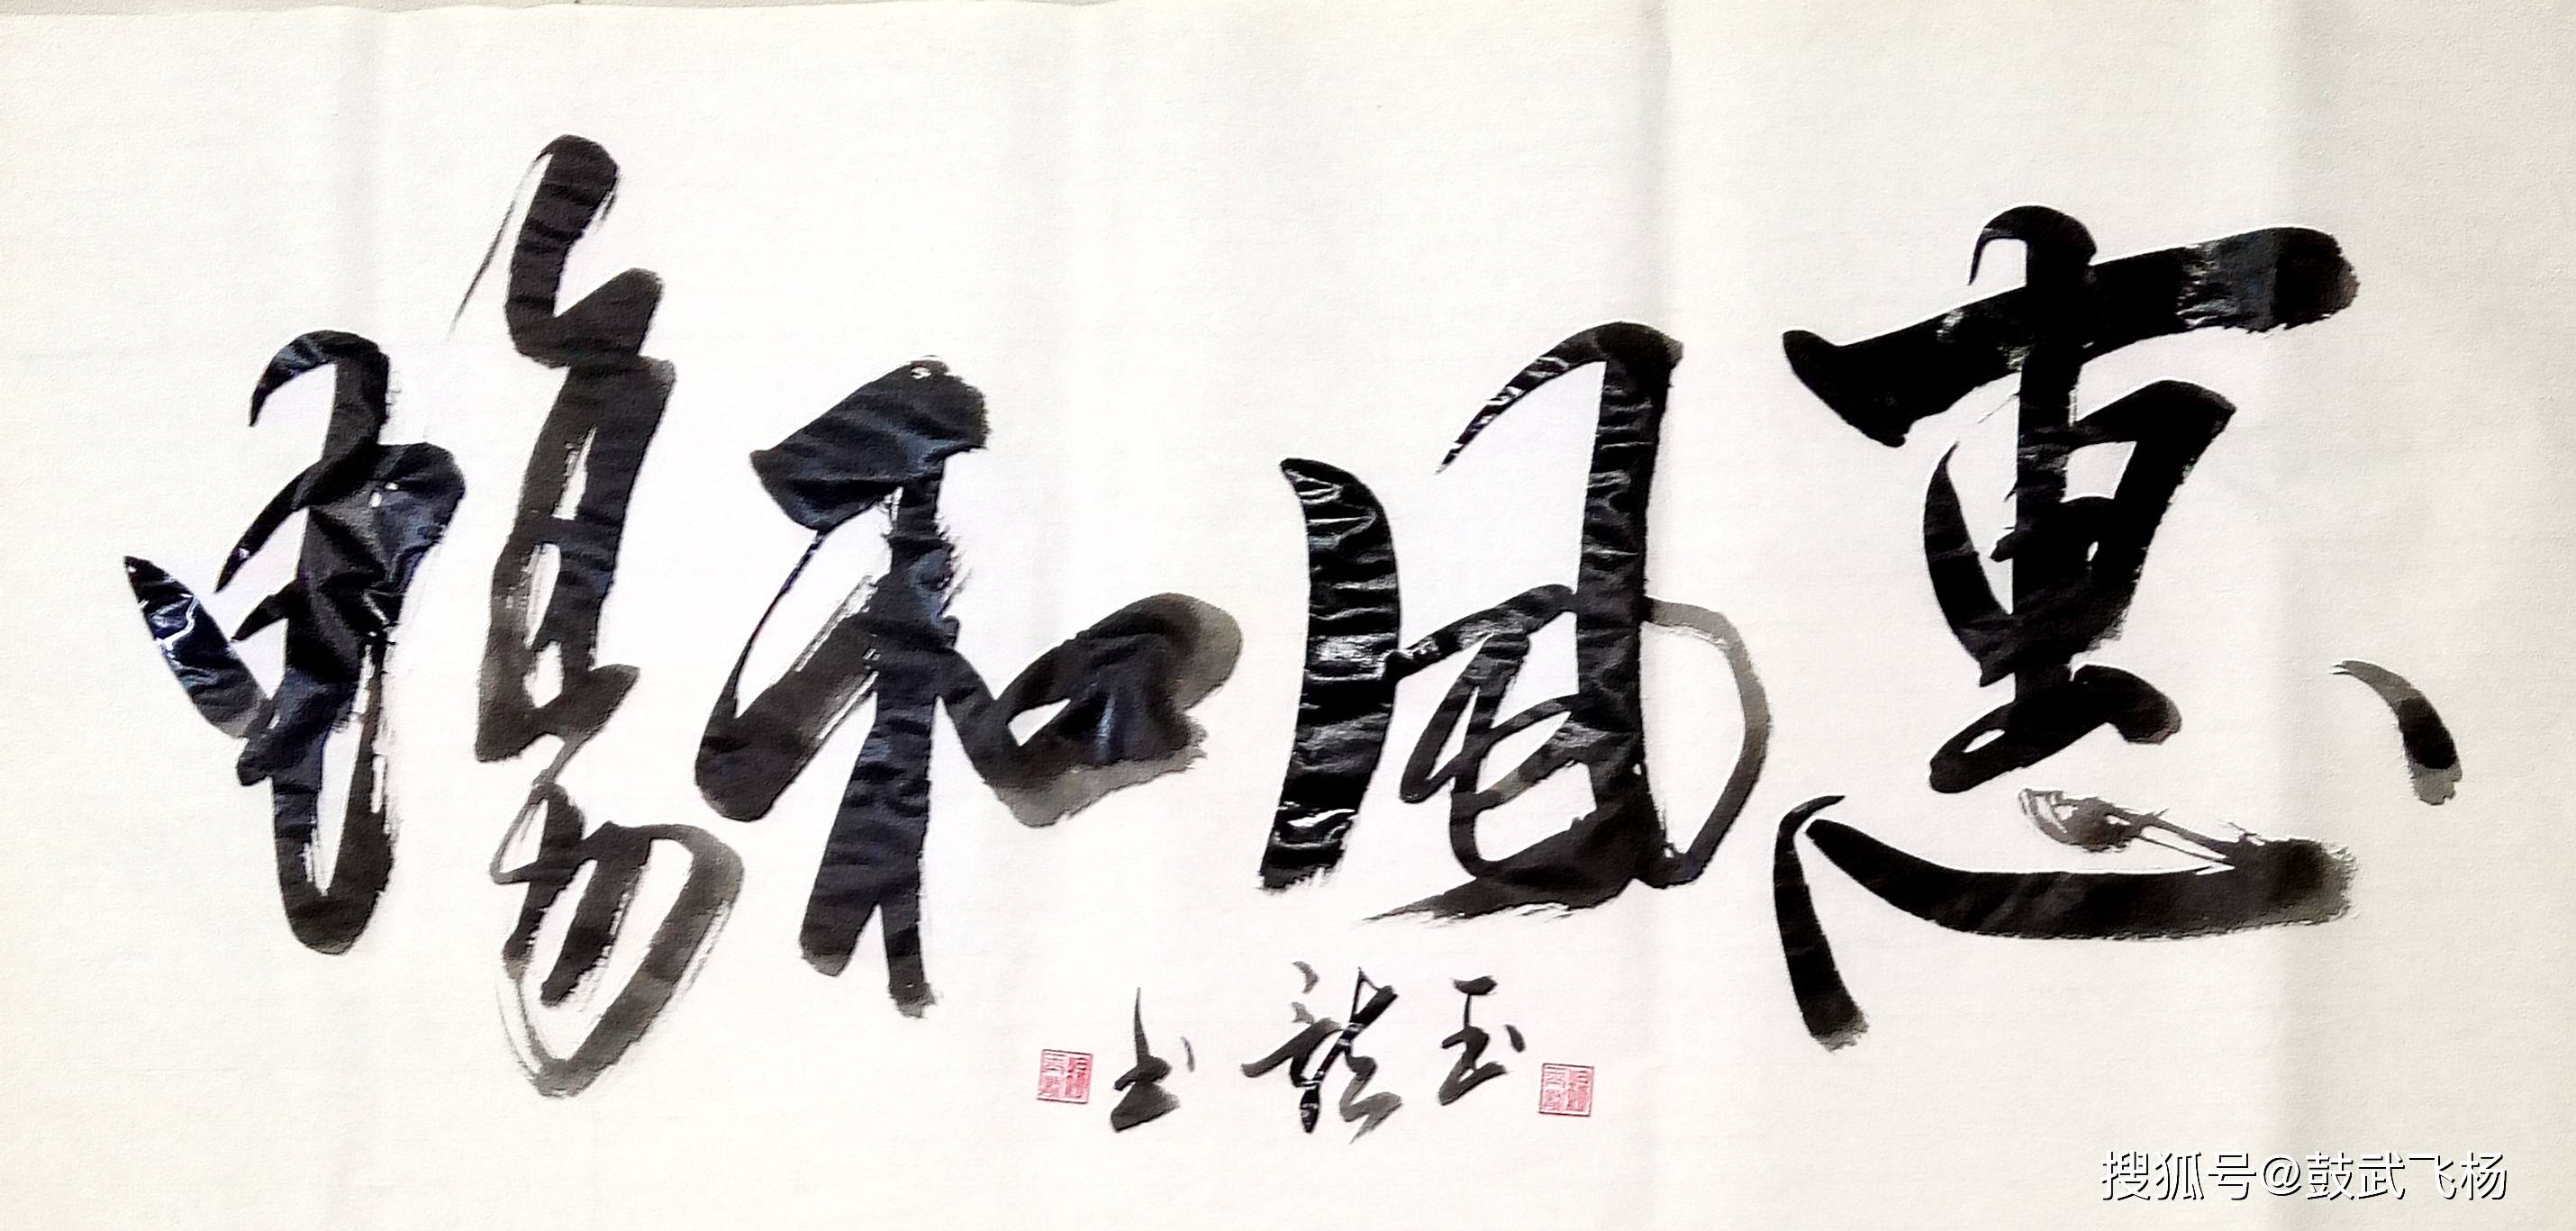 惠風和暢
玉龍书
搜狐号@鼓武飞杨